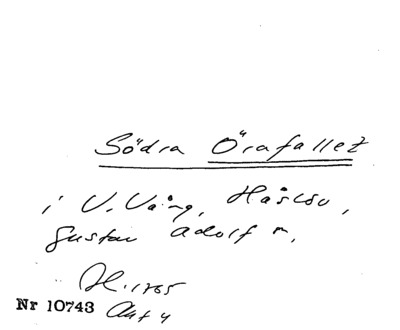 Södra Örafallet
i V. Vång, Håslöv,
Gustav Adolf m.
H. 1765
Nr 10743 Akt 4